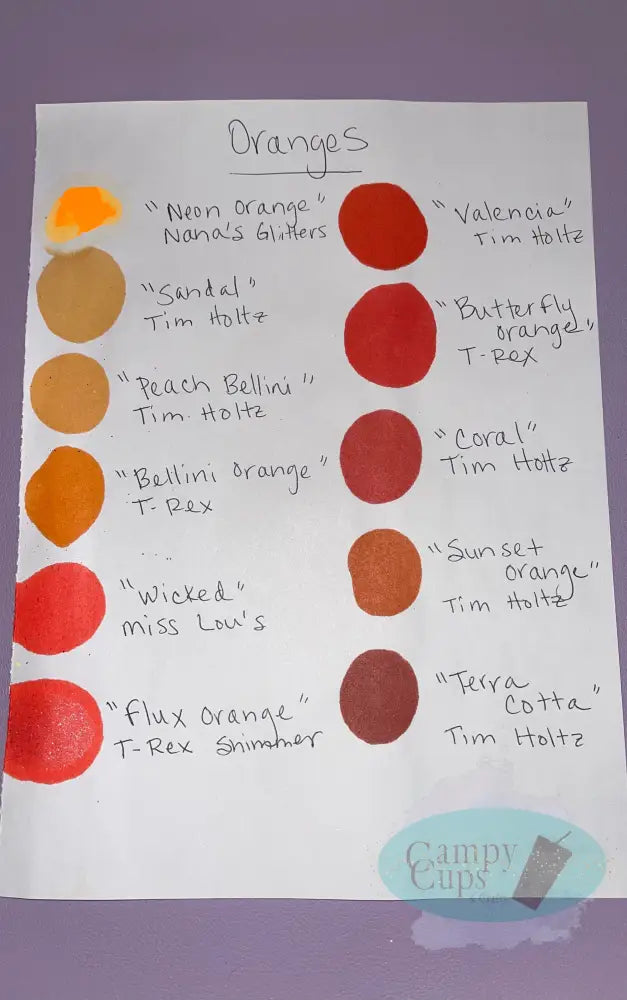 Oranges
"Neon Orange"
Nana's Glitters
"Sandal"
Tim Holtz
"Peach Bellini"
Tim Holtz
"Bellini Orange"
T-Rex
"Wicked"
Miss Lou's
"Flux Orange"
T-Rex Shimmer
"Valencia"
Tim Holtz
"Butterfly
Orange"
T-Rex
"Coral"
Tim Holtz
"Sunset
Orange"
Tim Holtz
"Terra
Cotta"
Tim Holtz
Campy
Cups